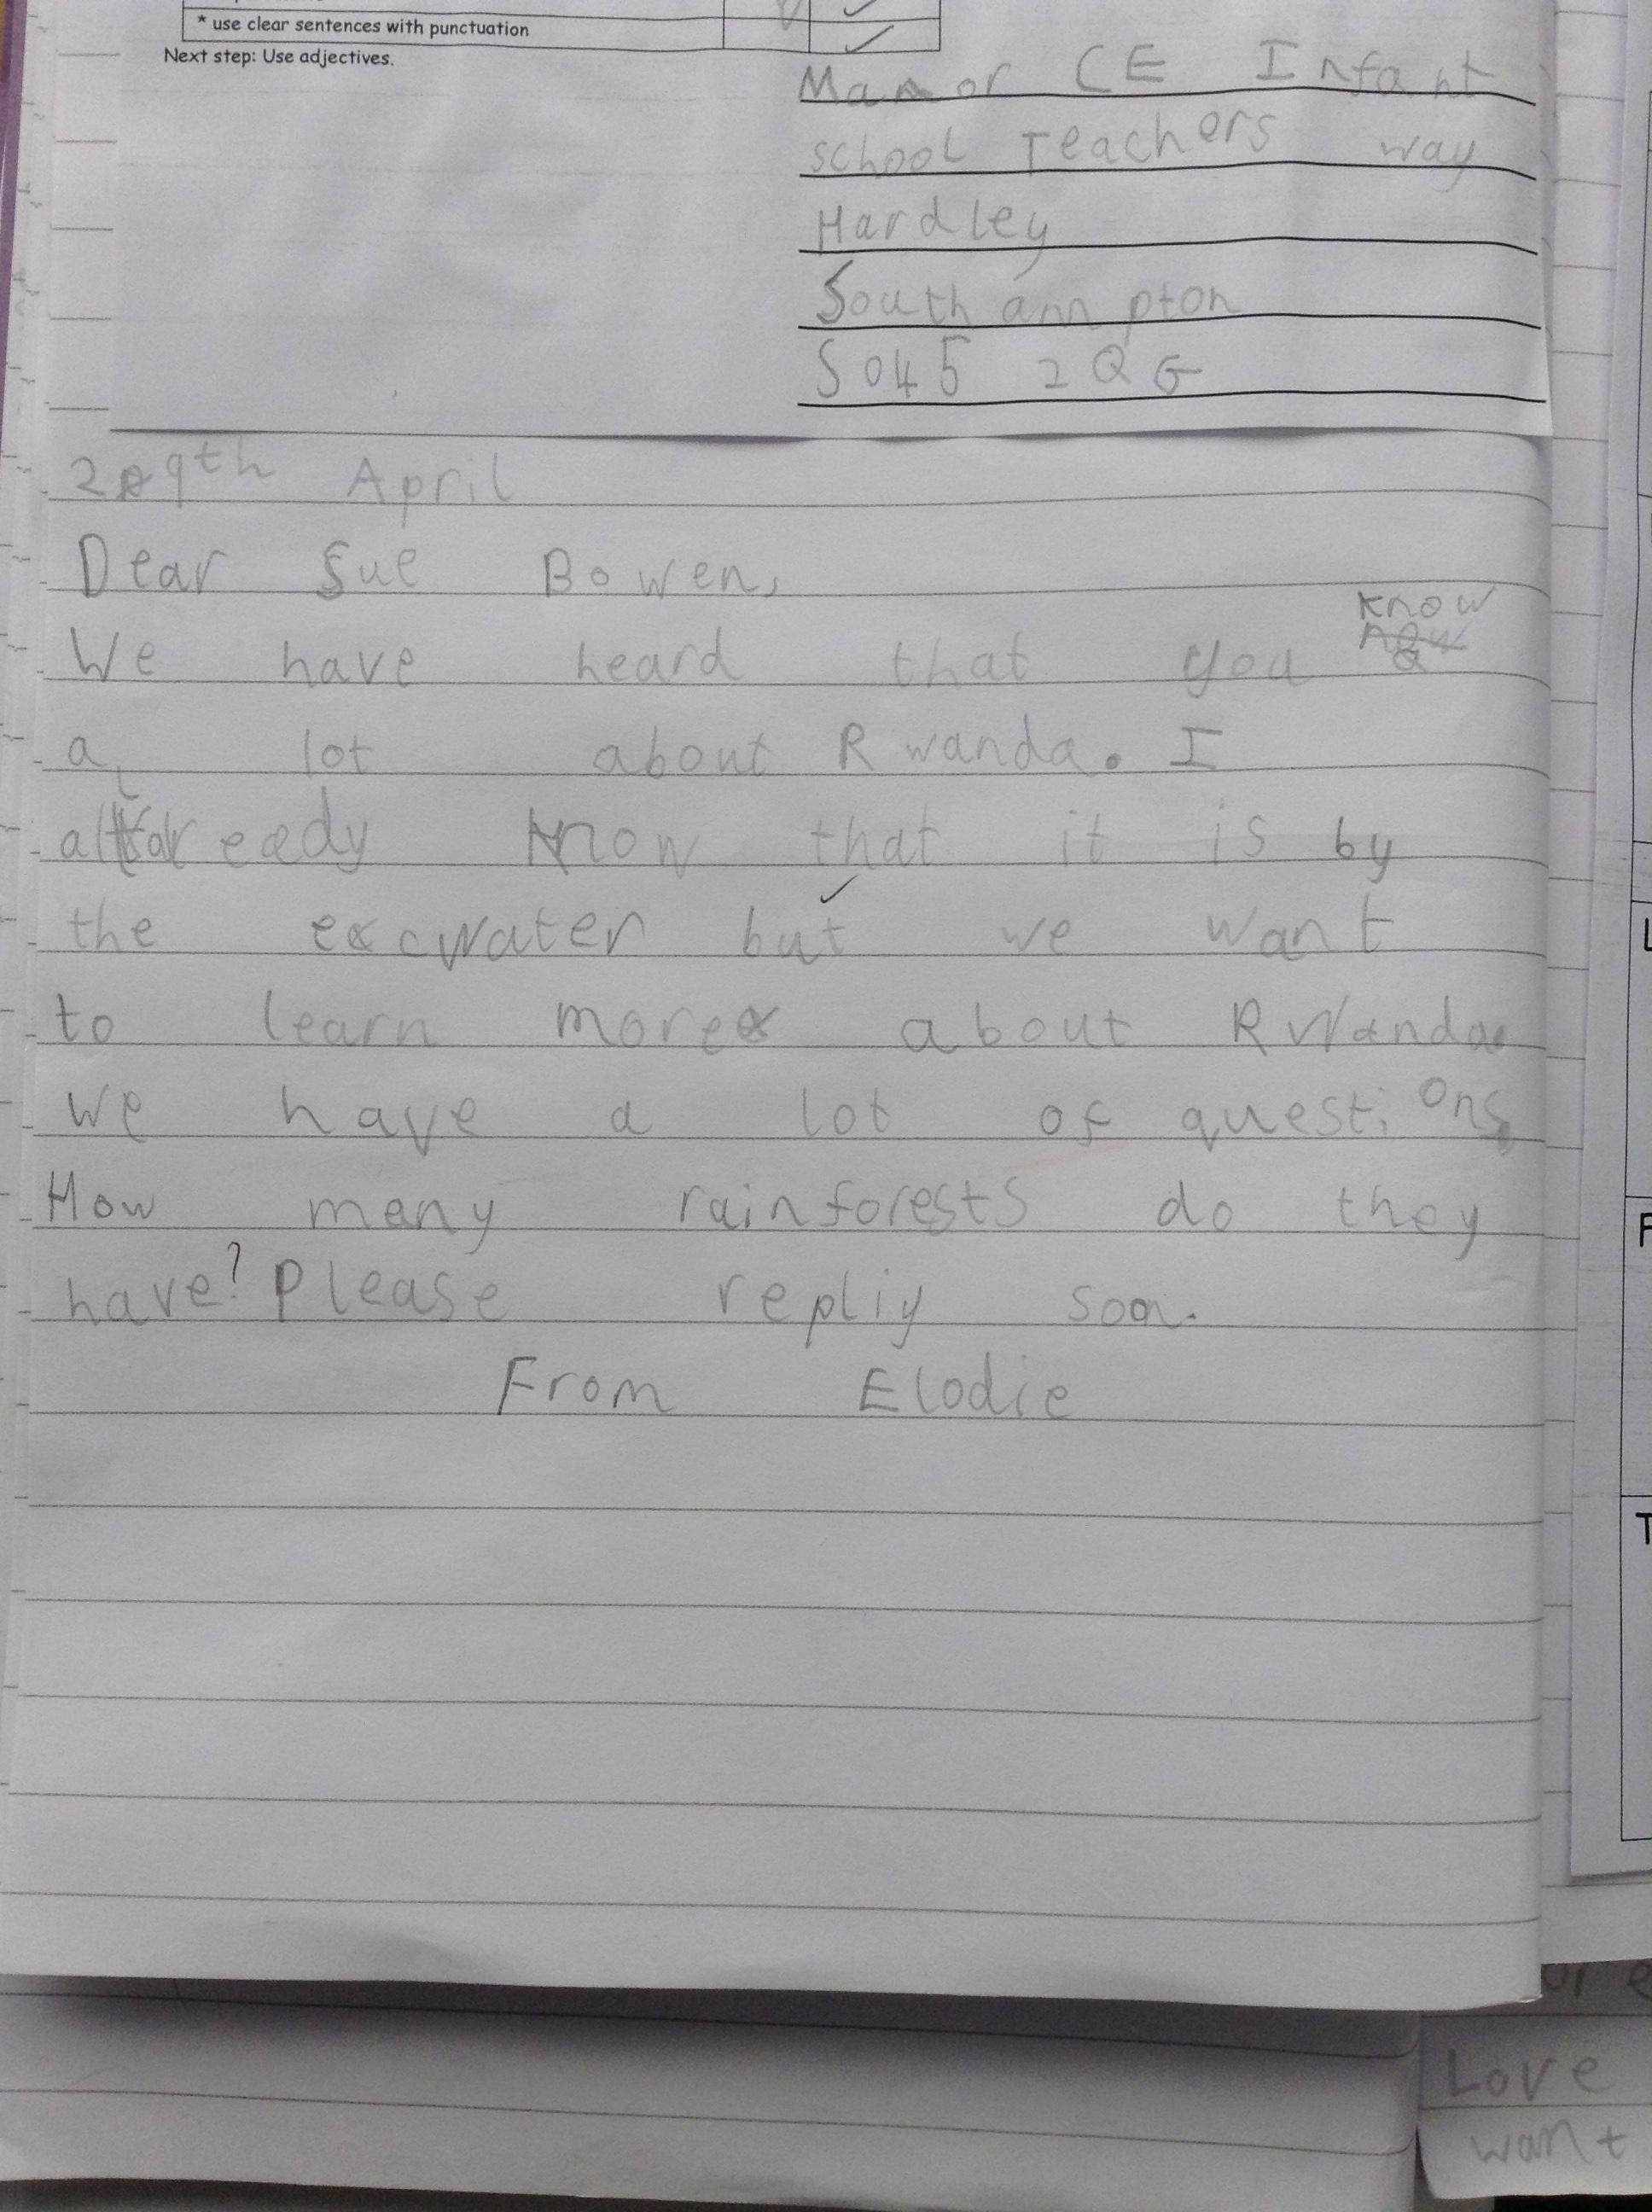 * use clear sentences with punctuation
Next step: Use adjectives.
Manor CE Infant
school Teachers way
Hardley
Southampton
SO45 2QG
29th April
Dear Sue Bowen,
know
We have heard that you
a lot about Rwanda. I
already know that it is by
the excwater but we want
to learn more about Rwanda.
we have a lot of questions.
How many rainforests do they
have? Please repliy soon.
From Elodie
Love
want